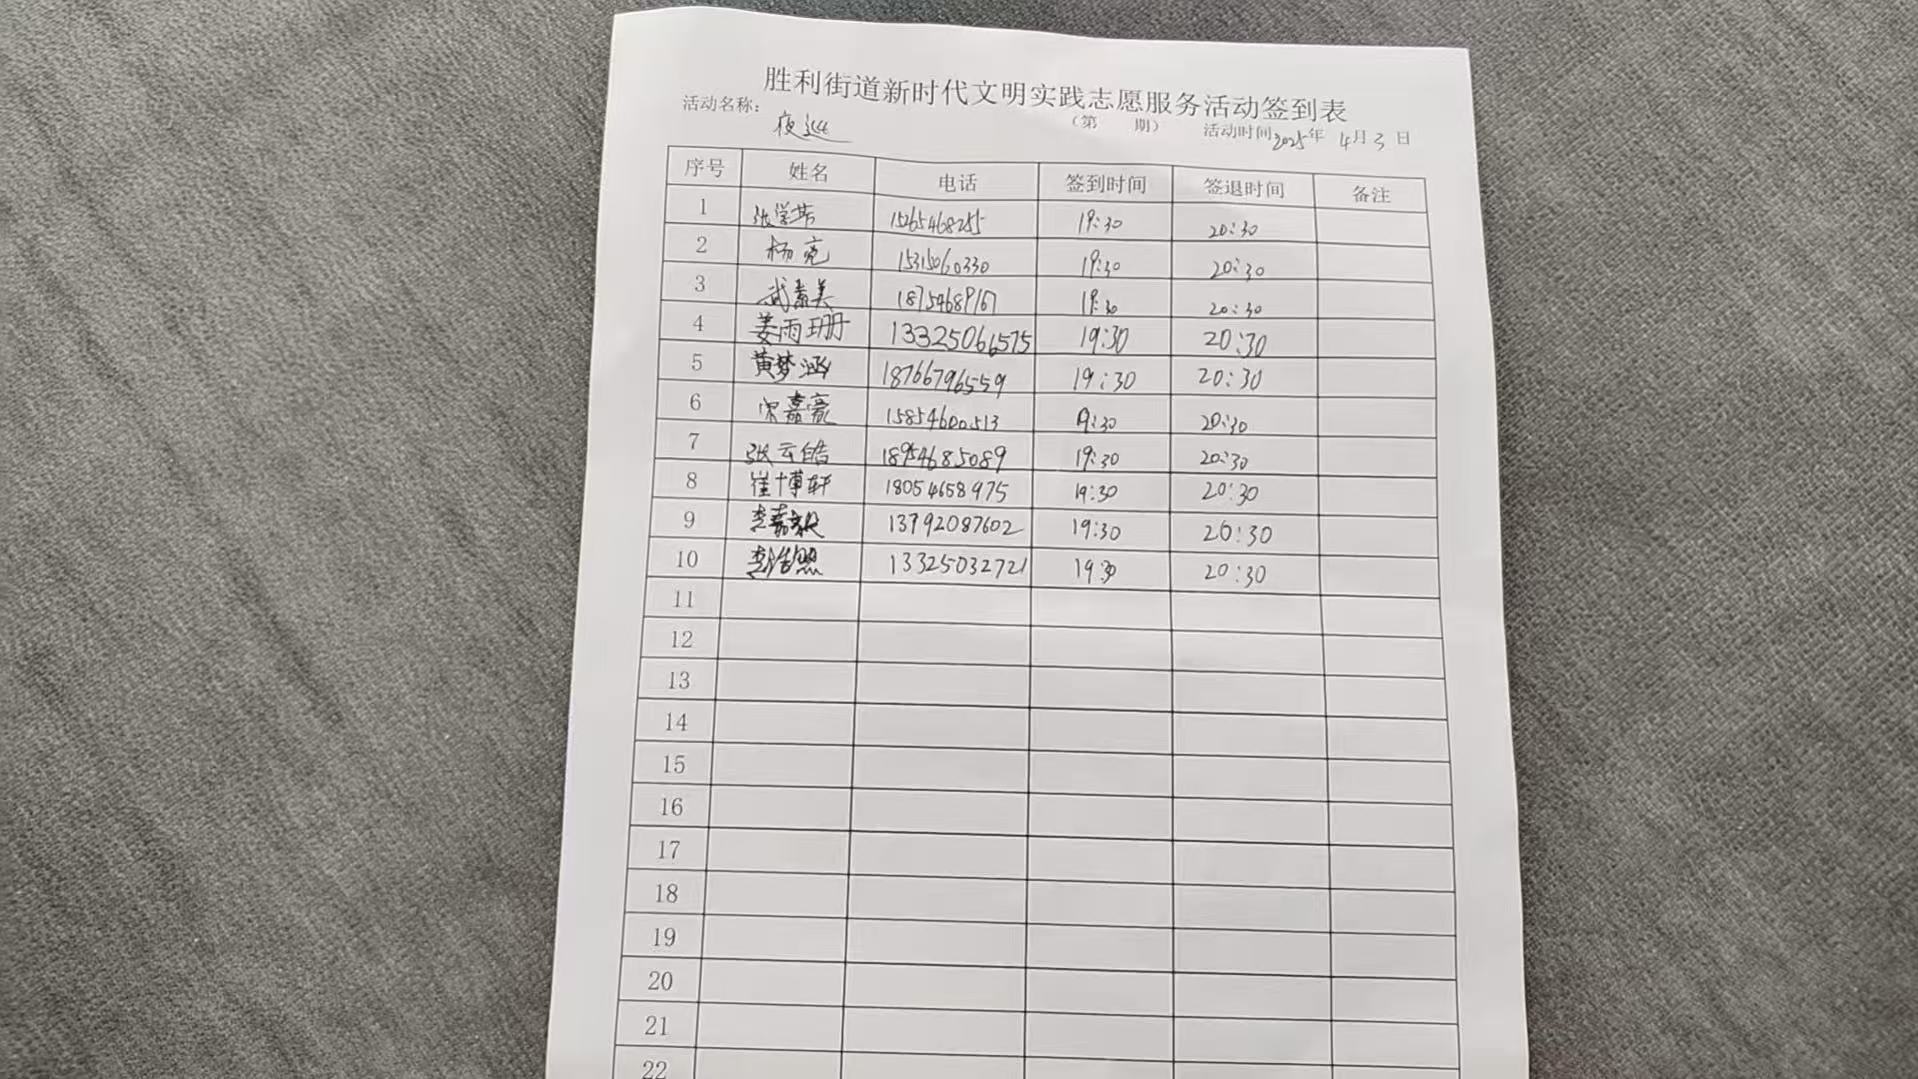 胜利街道新时代文明实践志愿服务活动签到表
活动名称: 夜巡 （第 期） 活动时间2025年 4月3日
序号 姓名 电话 签到时间 签退时间 备注
1 张学芳 15265468255 19:30 20:30
2 杨亮 15315060330 19:30 20:30
3 武素美 18754689167 19:30 20:30
4 姜雨珊 13325066575 19:30 20:30
5 黄梦涵 18766796559 19:30 20:30
6 宋嘉豪 15854600513 19:30 20:30
7 张云皓 18954685089 19:30 20:30
8 崔博轩 18054658975 19:30 20:30
9 李嘉 13792087602 19:30 20:30
10 13325032721 19:30 20:30
11
12
13
14
15
16
17
18
19
20
21
22